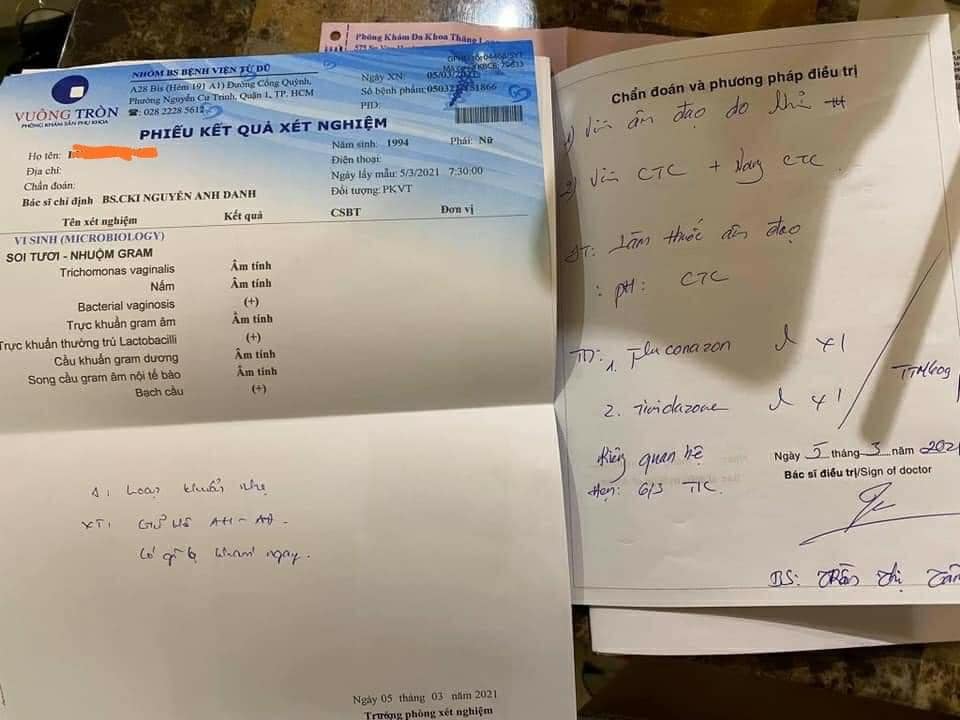 Phòng Khám Đa Khoa Thăng
NHÓM BS BỆNH VIỆN TỪ DŨ
A28 Bis (Hẻm 191 A1) Đường Cống Quỳnh,
Phường Nguyễn Cư Trinh, Quận 1, TP. HCM
☎: 028 2228 5612
VUÔNG TRÒN
PHÒNG KHÁM SẢN PHỤ KHOA
Ngày XN: 05/03/2021
Số bệnh phẩm:
PID:
PHIẾU KẾT QUẢ XÉT NGHIỆM
Họ tên:
Năm sinh: 1994 Phái: Nữ
Địa chỉ:
Điện thoại:
Chẩn đoán:
Ngày lấy mẫu: 5/3/2021 7:30:00
Bác sĩ chỉ định BS.CKI NGUYỄN ANH DANH
Đối tượng: PKVT
Tên xét nghiệm Kết quả CSBT Đơn vị
VI SINH (MICROBIOLOGY)
SOI TƯƠI - NHUỘM GRAM
Trichomonas vaginalis Âm tính
Nấm Âm tính
Bacterial vaginosis (+)
Trực khuẩn gram âm Âm tính
Trực khuẩn thường trú Lactobacilli (+)
Cầu khuẩn gram dương Âm tính
Song cầu gram âm nội tế bào Âm tính
Bạch cầu (+)
Δ: Loạn khuẩn nhẹ
XT: Giữ VS AH - AĐ
Có gì lạ khám ngay.
Ngày 05 tháng 03 năm 2021
Trưởng phòng xét nghiệm
Chẩn đoán và phương pháp điều trị
1) Viêm âm đạo do
2) Viêm CTC + Nang CTC
ĐT: Làm thuốc âm đạo
: pH: CTC
1. Fluconazon x1
2. Tinidazone x1
Kiêng quan hệ
Hẹn: 6/3
Ngày 5 tháng 3 năm 2021
Bác sĩ điều trị/Sign of doctor
BS: Trần Thị